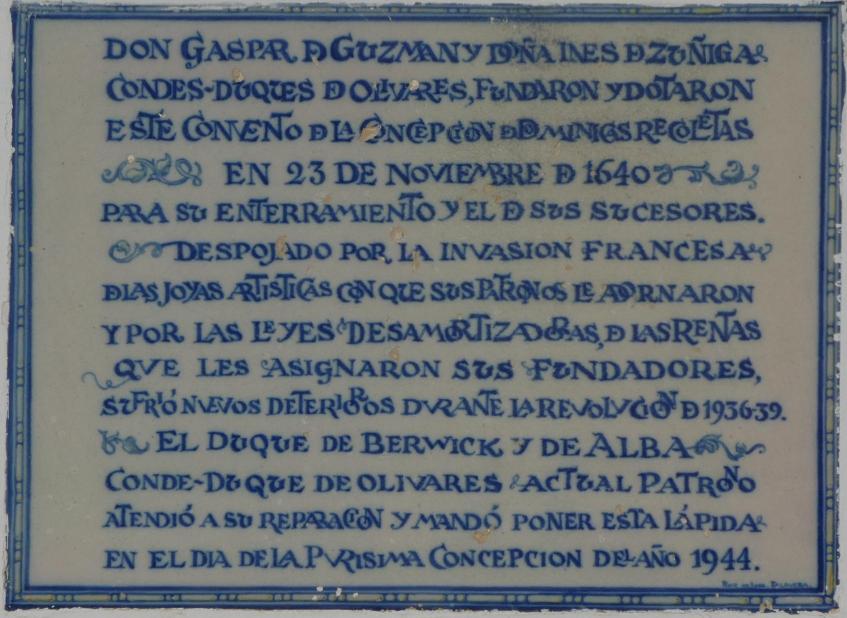 DON GASPAR D GUZMAN Y DOÑA INES D ZUÑIGA
CONDES-DUQUES D OLIVARES, FUNDARON Y DOTARON
ESTE CONVENTO D LA CONCEPCION D DOMINICAS RECOLETAS
EN 23 DE NOVIEMBRE D 1640
PARA SU ENTERRAMIENTO Y EL D SUS SUCESORES.
DESPOJADO POR LA INVASION FRANCESA
D LAS JOYAS ARTISTICAS CON QUE SUS PATRONOS LE ADORNARON
Y POR LAS LEYES DESAMORTIZADORAS, D LAS RENTAS
QUE LES ASIGNARON SUS FUNDADORES,
SUFRIÓ NUEVOS DETERIOROS DURANTE LA REVOLUCION D 1936-39.
EL DUQUE DE BERWICK Y DE ALBA
CONDE-DUQUE DE OLIVARES ACTUAL PATRONO
ATENDIÓ A SU REPARACION Y MANDÓ PONER ESTA LÁPIDA
EN EL DIA DE LA PURISIMA CONCEPCION DEL AÑO 1944.